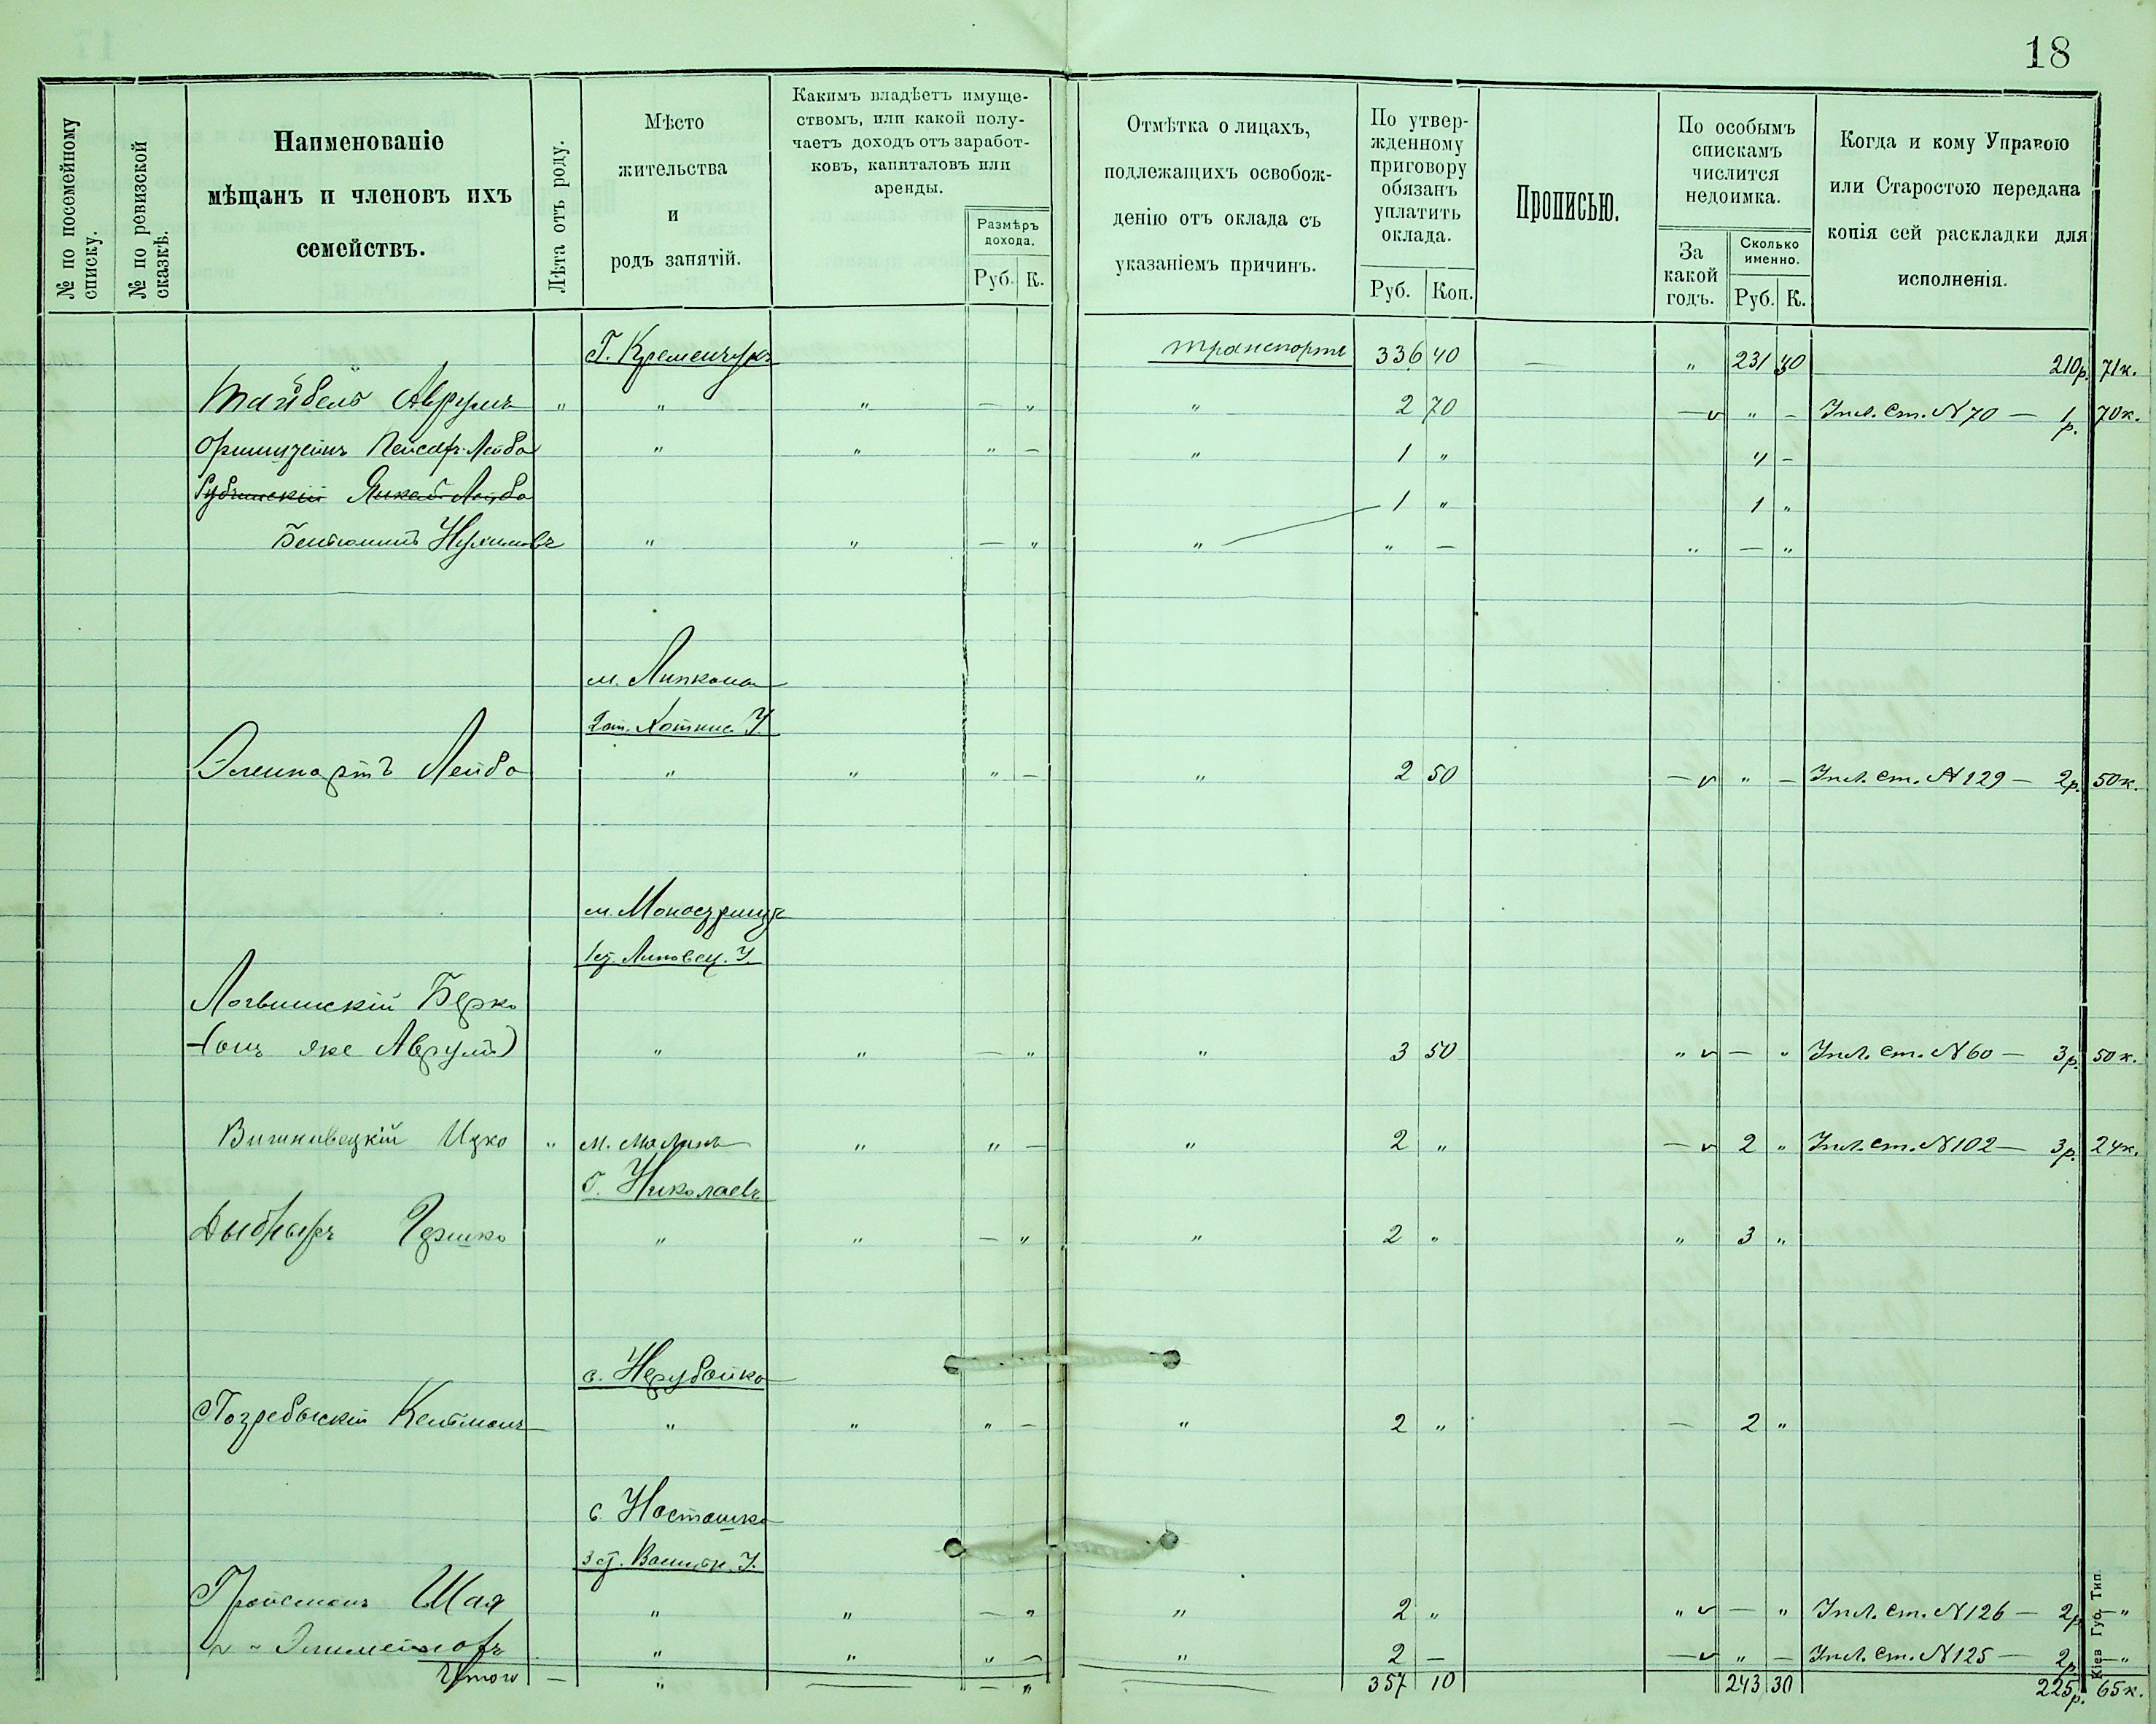 18
№ по посемейному списку.
№ по ревизской сказкѣ.
Наименованіе
мѣщанъ и членовъ ихъ
семействъ.
Лѣта отъ роду.
Мѣсто
жительства
и
родъ занятій.
Какимъ владѣетъ имуще-
ствомъ, или какой полу-
чаетъ доходъ отъ заработ-
ковъ, капиталовъ или
аренды.
Размѣръ
дохода.
Руб. К.
Отмѣтка о лицахъ,
подлежащихъ освобож-
денію отъ оклада съ
указаніемъ причинъ.
По утвер-
жденному
приговору
обязанъ
уплатить
оклада.
Руб. Коп.
Прописью.
По особымъ
спискамъ
числится
недоимка.
За
какой
годъ.
Сколько
именно.
Руб. К.
Когда и кому Управою
или Старостою передана
копія сей раскладки для
исполненія.
Г. Кременчукъ транспортъ 336 40 — " 231 30 210р. 71к.
Тайбель Аврумъ " " " — " " 2 70 — v " — ст. N 70 — 1р. 70к.
Лейба " " " — " 1 " " —
Лейба 1 " 1 "
Нухимовъ " " — " " " — " — "
м. Липкона
2 ст. Хотинс. У.
Лейба " " " — " 2 50 — v " — ст. N 129 — 2р. 50к.
м.
1 ст. Липовец. У.
Логвинскій Берко
(онъ же Аврумъ) " " — " " 3 50 " v — " ст. N 60 — 3р. 50к.
Вишневецкій Ицко " м. Малинъ " " — " 2 " — v 2 " ст. N 102 — 3р. 24к.
Г. Николаевъ
Гершко " " — " " 2 " " 3 "
с. Нерубайка
Погребыскій Кельманъ " " " — " 2 " — 2 "
с. Насташка
3 ст. Васильк. У.
Гройсманъ Шая " " — " " 2 " " v — " ст. N 126 — 2р. — "
" " " " — " 2 — — v " — ст. N 125 — 2р. — "
Итого — " — — " — 357 10 243 30 225р. 65к.
Кіев Губ. Тип.